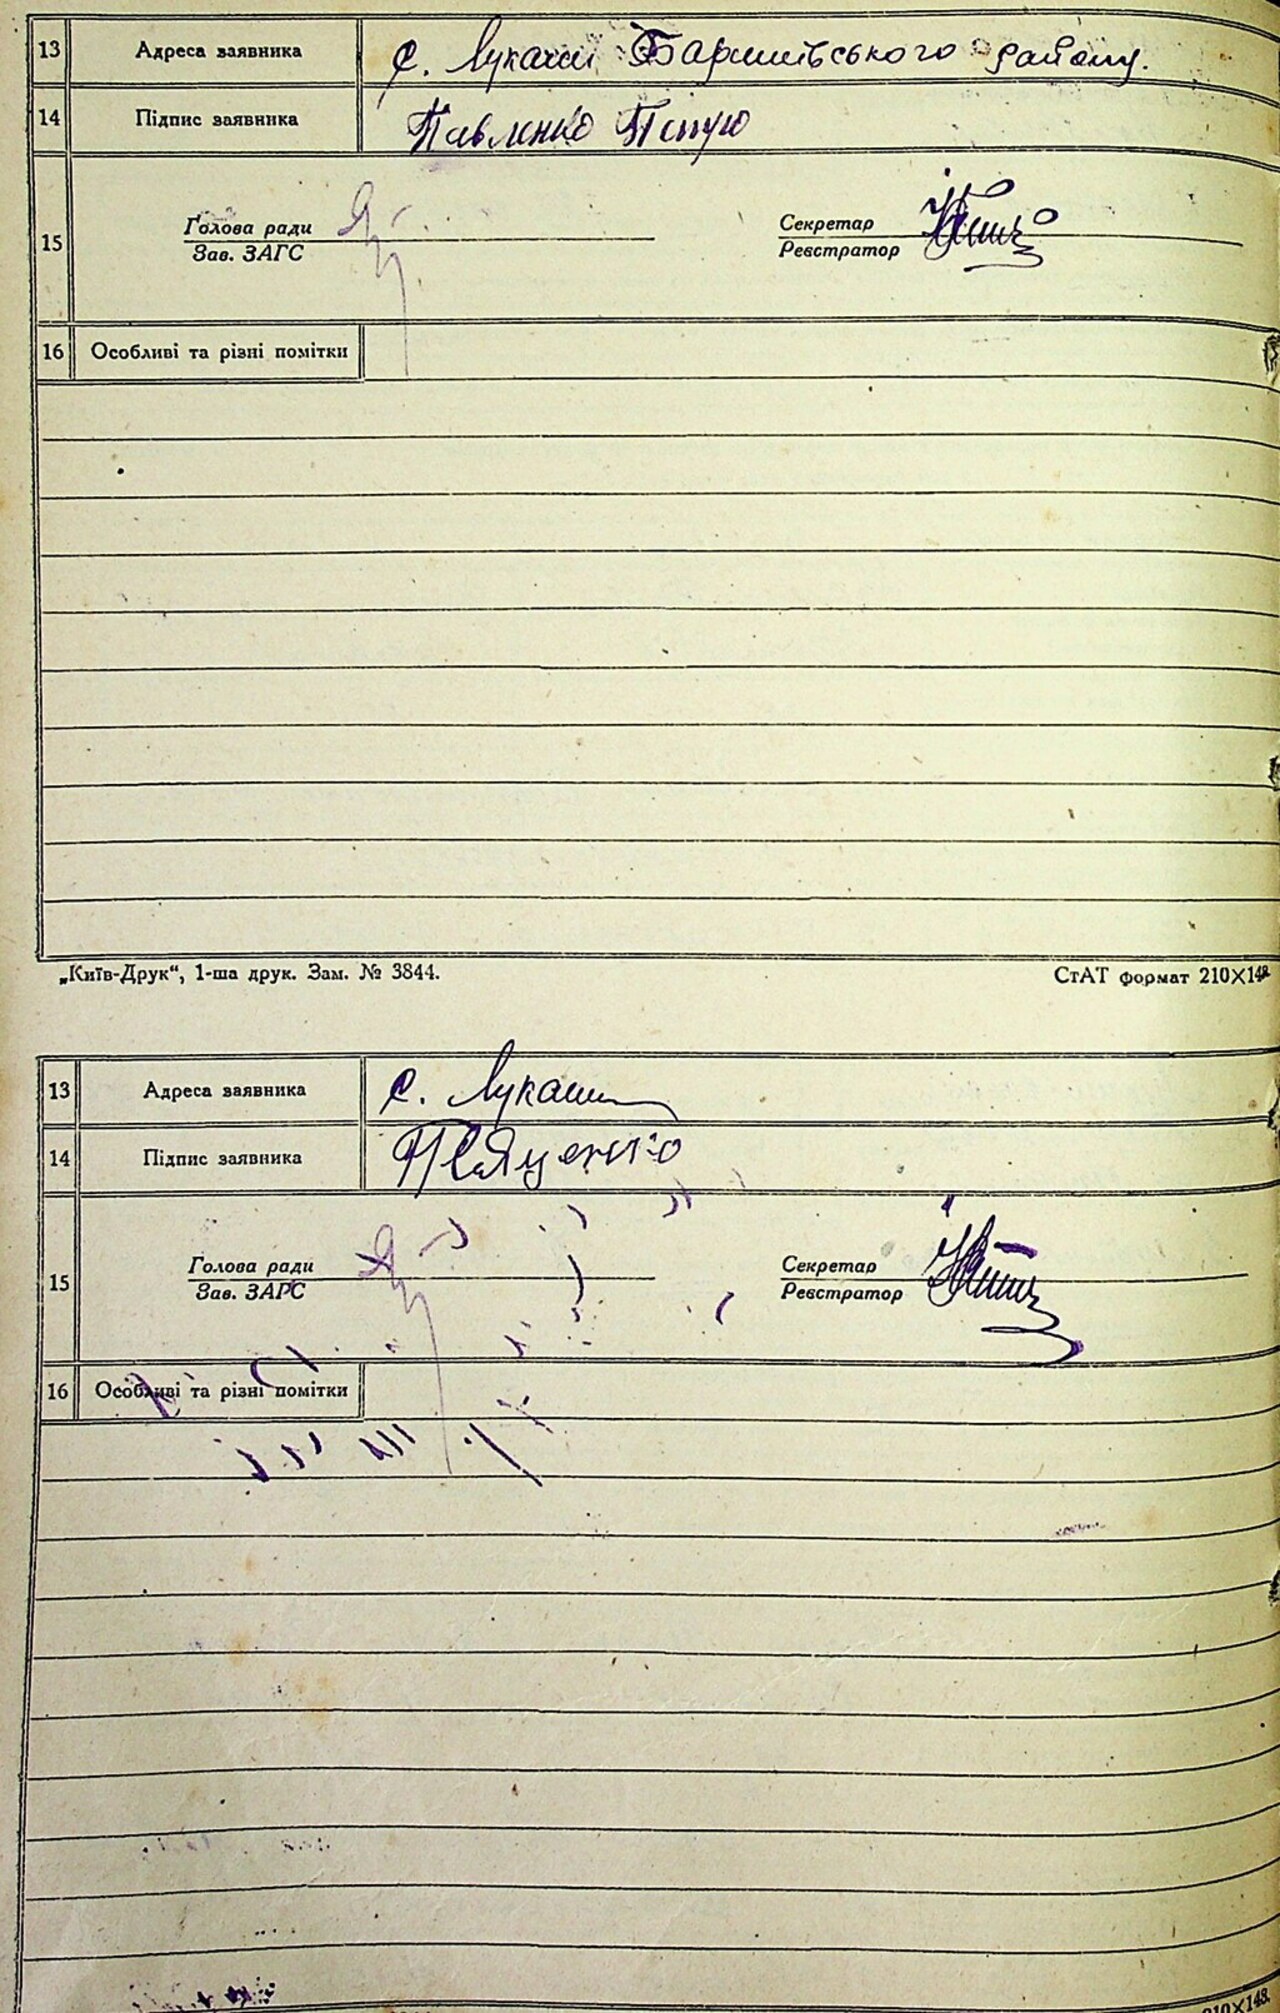 13 Адреса заявника с. Лукаши Баришівського району.
14 Підпис заявника Павленко
15 Голова ради Секретар
Зав. ЗАГС Реєстратор
16 Особливі та різні помітки
„Київ-Друк“, 1-ша друк. Зам. № 3844. СтАТ формат 210×148
13 Адреса заявника с. Лукаши
14 Підпис заявника
15 Голова ради Секретар
Зав. ЗАГС Реєстратор
16 Особливі та різні помітки
210×148.